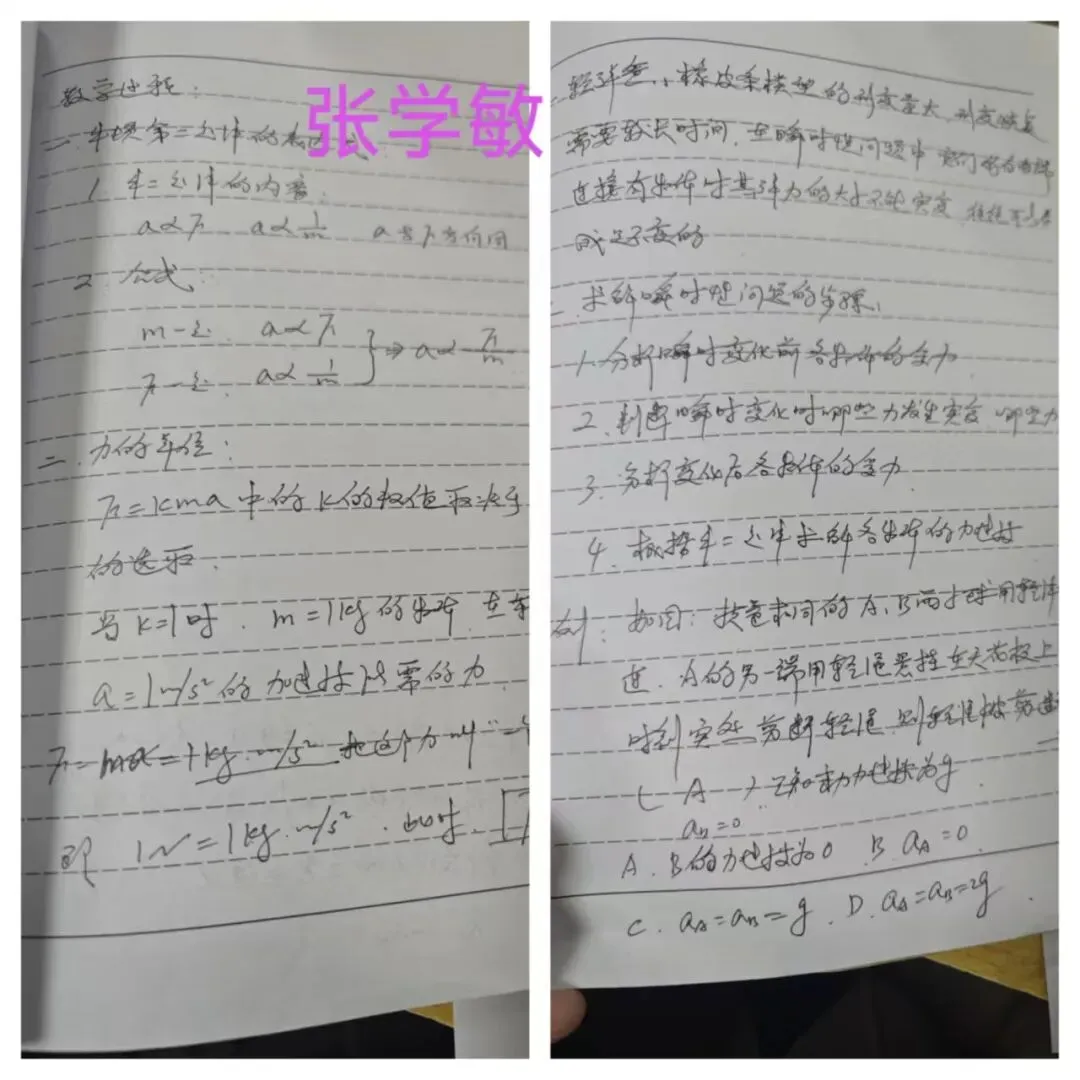 教学过程:
一. 牛顿第二定律的表达式
张学敏
1. 牛二定律的内容:
a∝F a∝1/m a与F方向同
2. 公式:
m一定 a∝F
F一定 a∝1/m } ⇒ a∝F/m
二. 力的单位:
F=kma中的k的数值取决于
的选取.
当k=1时. m=1kg的物体 在
a=1m/s²的加速度所需的力.
F=ma=1kg·m/s² 把这个力叫"
即 1N=1kg·m/s². 此时.
轻弹簧、橡皮条模型的形变量大、形变恢复
需要较长时间. 在瞬时性问题中
连接有物体时其弹力的大小不能突变 往往可以看
成是不变的
求解瞬时性问题的步骤:
1. 分析瞬时变化前各物体的受力
2. 判断瞬时变化时哪些力发生突变 哪些力
3. 分析变化后各物体的受力
4. 根据牛二定律求解各物体的加速度
例: 如图: 质量相同的A、B两小球用轻弹
连. A的另一端用轻绳悬挂在天花板上
时刻突然剪断轻绳 则轻绳被剪断
( A ) 已知重力加速度为g
aB=0
A. B的加速度为0 B. aA=0
C. aA=aB=g. D. aA=aB=2g.